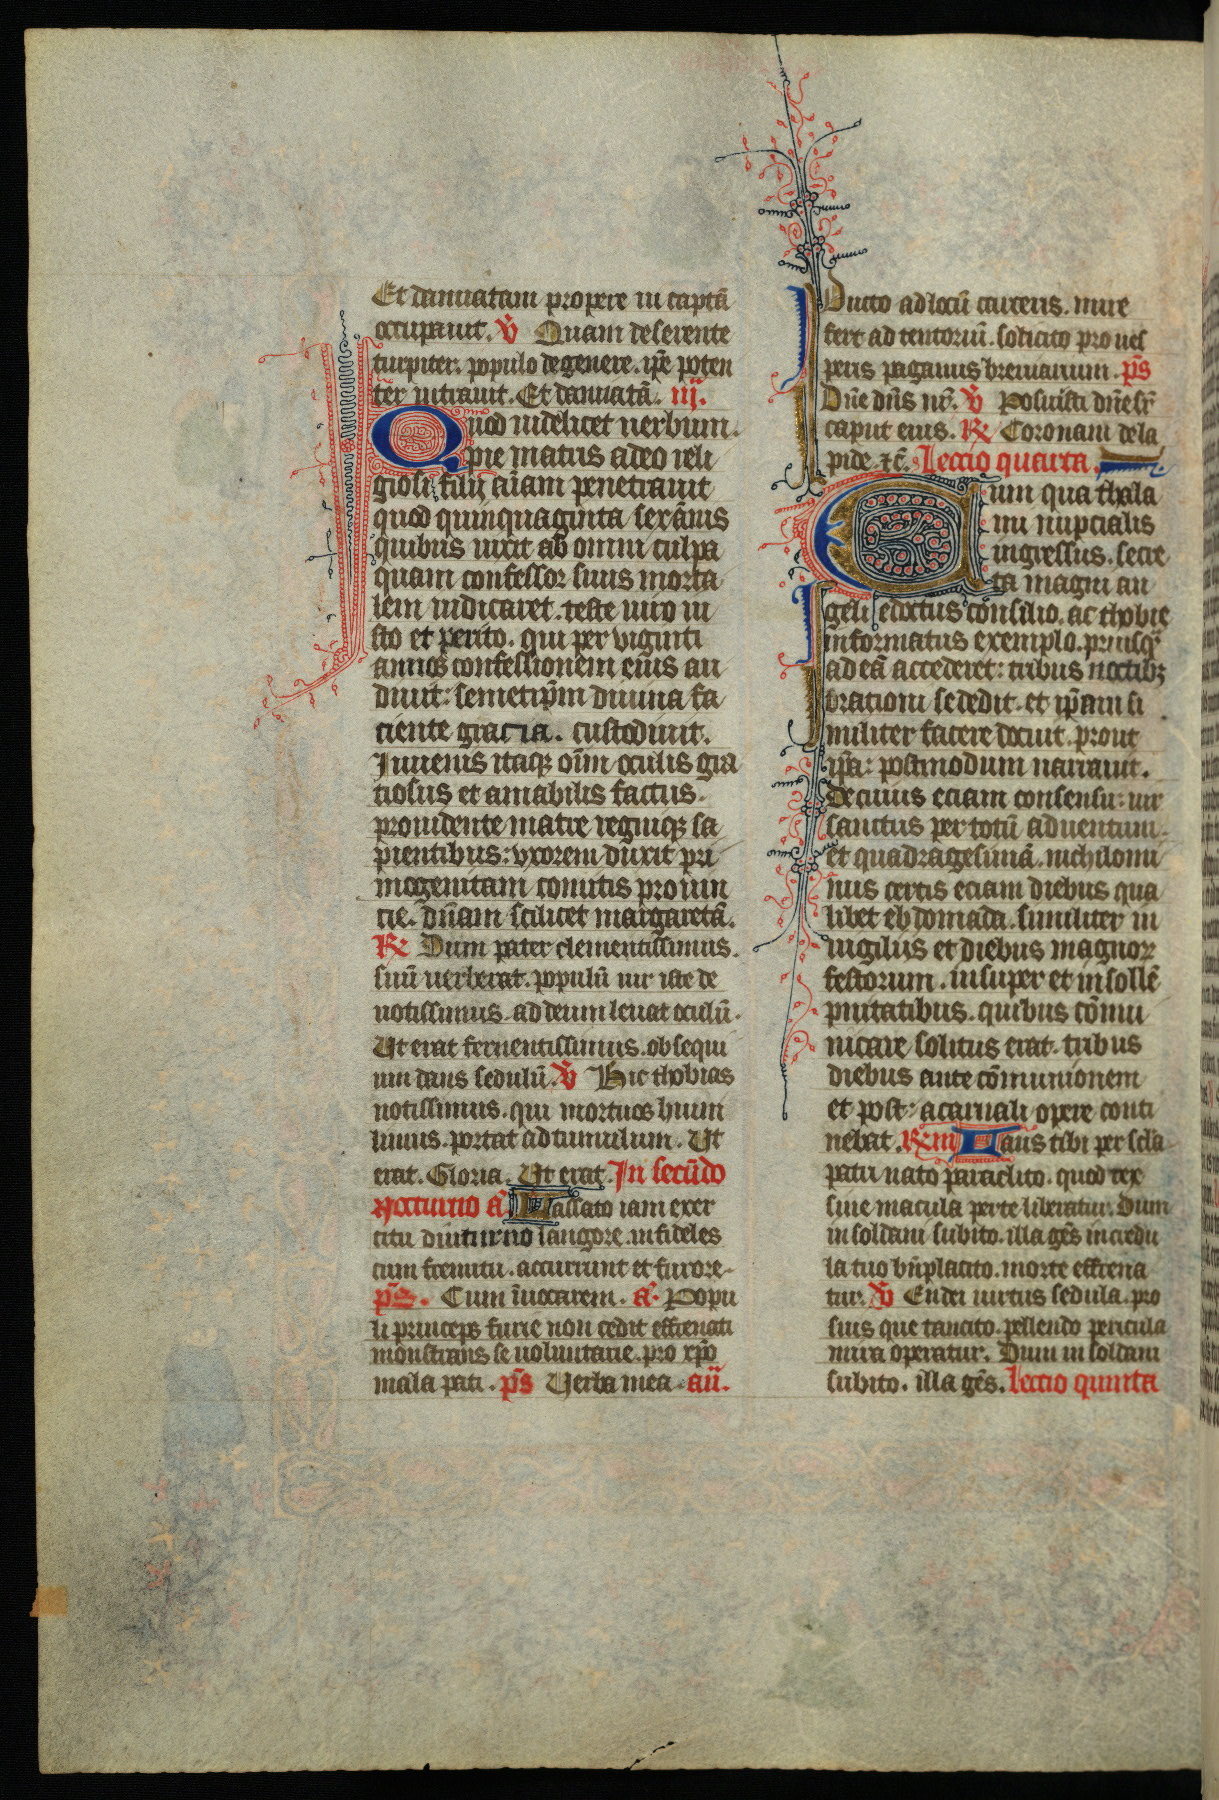 Et dampnatam propere in captā
occupauit. V̄ Quam deserente
turpiter. populo degenere. ip̄e poten
ter intrauit. Et dampnatā. iij.
Quod uidelicet uerbum.
pie matris adeo reli
giosi filij aīam penetrauit
quod quinquaginta sex ānis
quibus uixit ab omni culpa
quam confessor suus morta
lem iudicaret. teste uiro iu
sto et perito. qui per viginti
annos confessionem eius au
diuit: semetip̄m diuina fa
ciente gracia. custodiuit.
Iuuenis itaq; oīm oculis gra
tiosus et amabilis factus.
prouidente matre regniq; sa
pientibus: vxorem duxit pri
mogenitam comitis prouin
cie. dn̄am scilicet margaretā.
R̄ Dum pater clementissimus.
suū uerberat. populū uir iste de
uotissimus. ad deum leuat oculū.
Ut erat feruentissimus. obsequi
um dans sedulū. V̄ Hic thobias
notissimus. qui mortuos humi
limus. portat ad tumulum. Ut
erat. Gloria. Ut erat. In secūdo
nocturno a᷑ Lassato iam exer
citu diuturno langore. infideles
cum fremitu. accurrunt et furore.
p̄s. Cum īuocarem. a᷑. Popu
li princeps furie non cedit effrenati
monstrans se uoluntarie. pro xp̄o
mala pati. p̄s Uerba mea. an̄.
Ducto ad locū carceris. mire
fert ad tentoriū. solicito pro ues
peris paganus breuiarium. p̄s
Dn̄e dn̄s nr̄. V̄ Posuisti dn̄e sr̄
caput eius. R̄ Coronam de la
pide. ⁊c̄. Lectio quarta.
Cum qua thala
mi nupcialis
ingressus. secre
ta magni an
geli edoctus consilio. ac thobie
informatus exemplo. priusq̄
ad eā accederet: tribus noctib;
orationi se dedit. et ip̄am si
militer facere docuit. prout
ip̄a: postmodum narrauit.
De cuius eciam consensu: uir
sanctus per totū aduentum.
et quadragesimā. nichilomi
nus certis eciam diebus qua
libet ebdomada. similiter in
uigiliis et diebus magnoꝝ
festorum. insuper et in sollē
pnitatibus. quibus cōmu
nicare solitus erat. tribus
diebus ante cōmunionem
et post: a carnali opere conti
nebat. R̄m Laus tibi per scla
patri nato paraclito. quod rex
sine macula per te liberatur. Dum
in soldani subito. illa gēs incredu
la tuo bn̄placito. morte effrena
tur. V̄ En dei uirtus sedula. pro
suis que tancito. pellendo pericula
mira operatur. Dum in soldani
subito. illa gēs. Lectio quinta